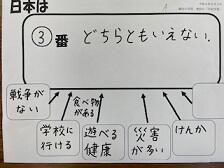 日本は
③番 どちらともいえない.
戦争が
ない
食べ物
がある
学校に
行ける
遊べる
健康
災害
が多い
けんか